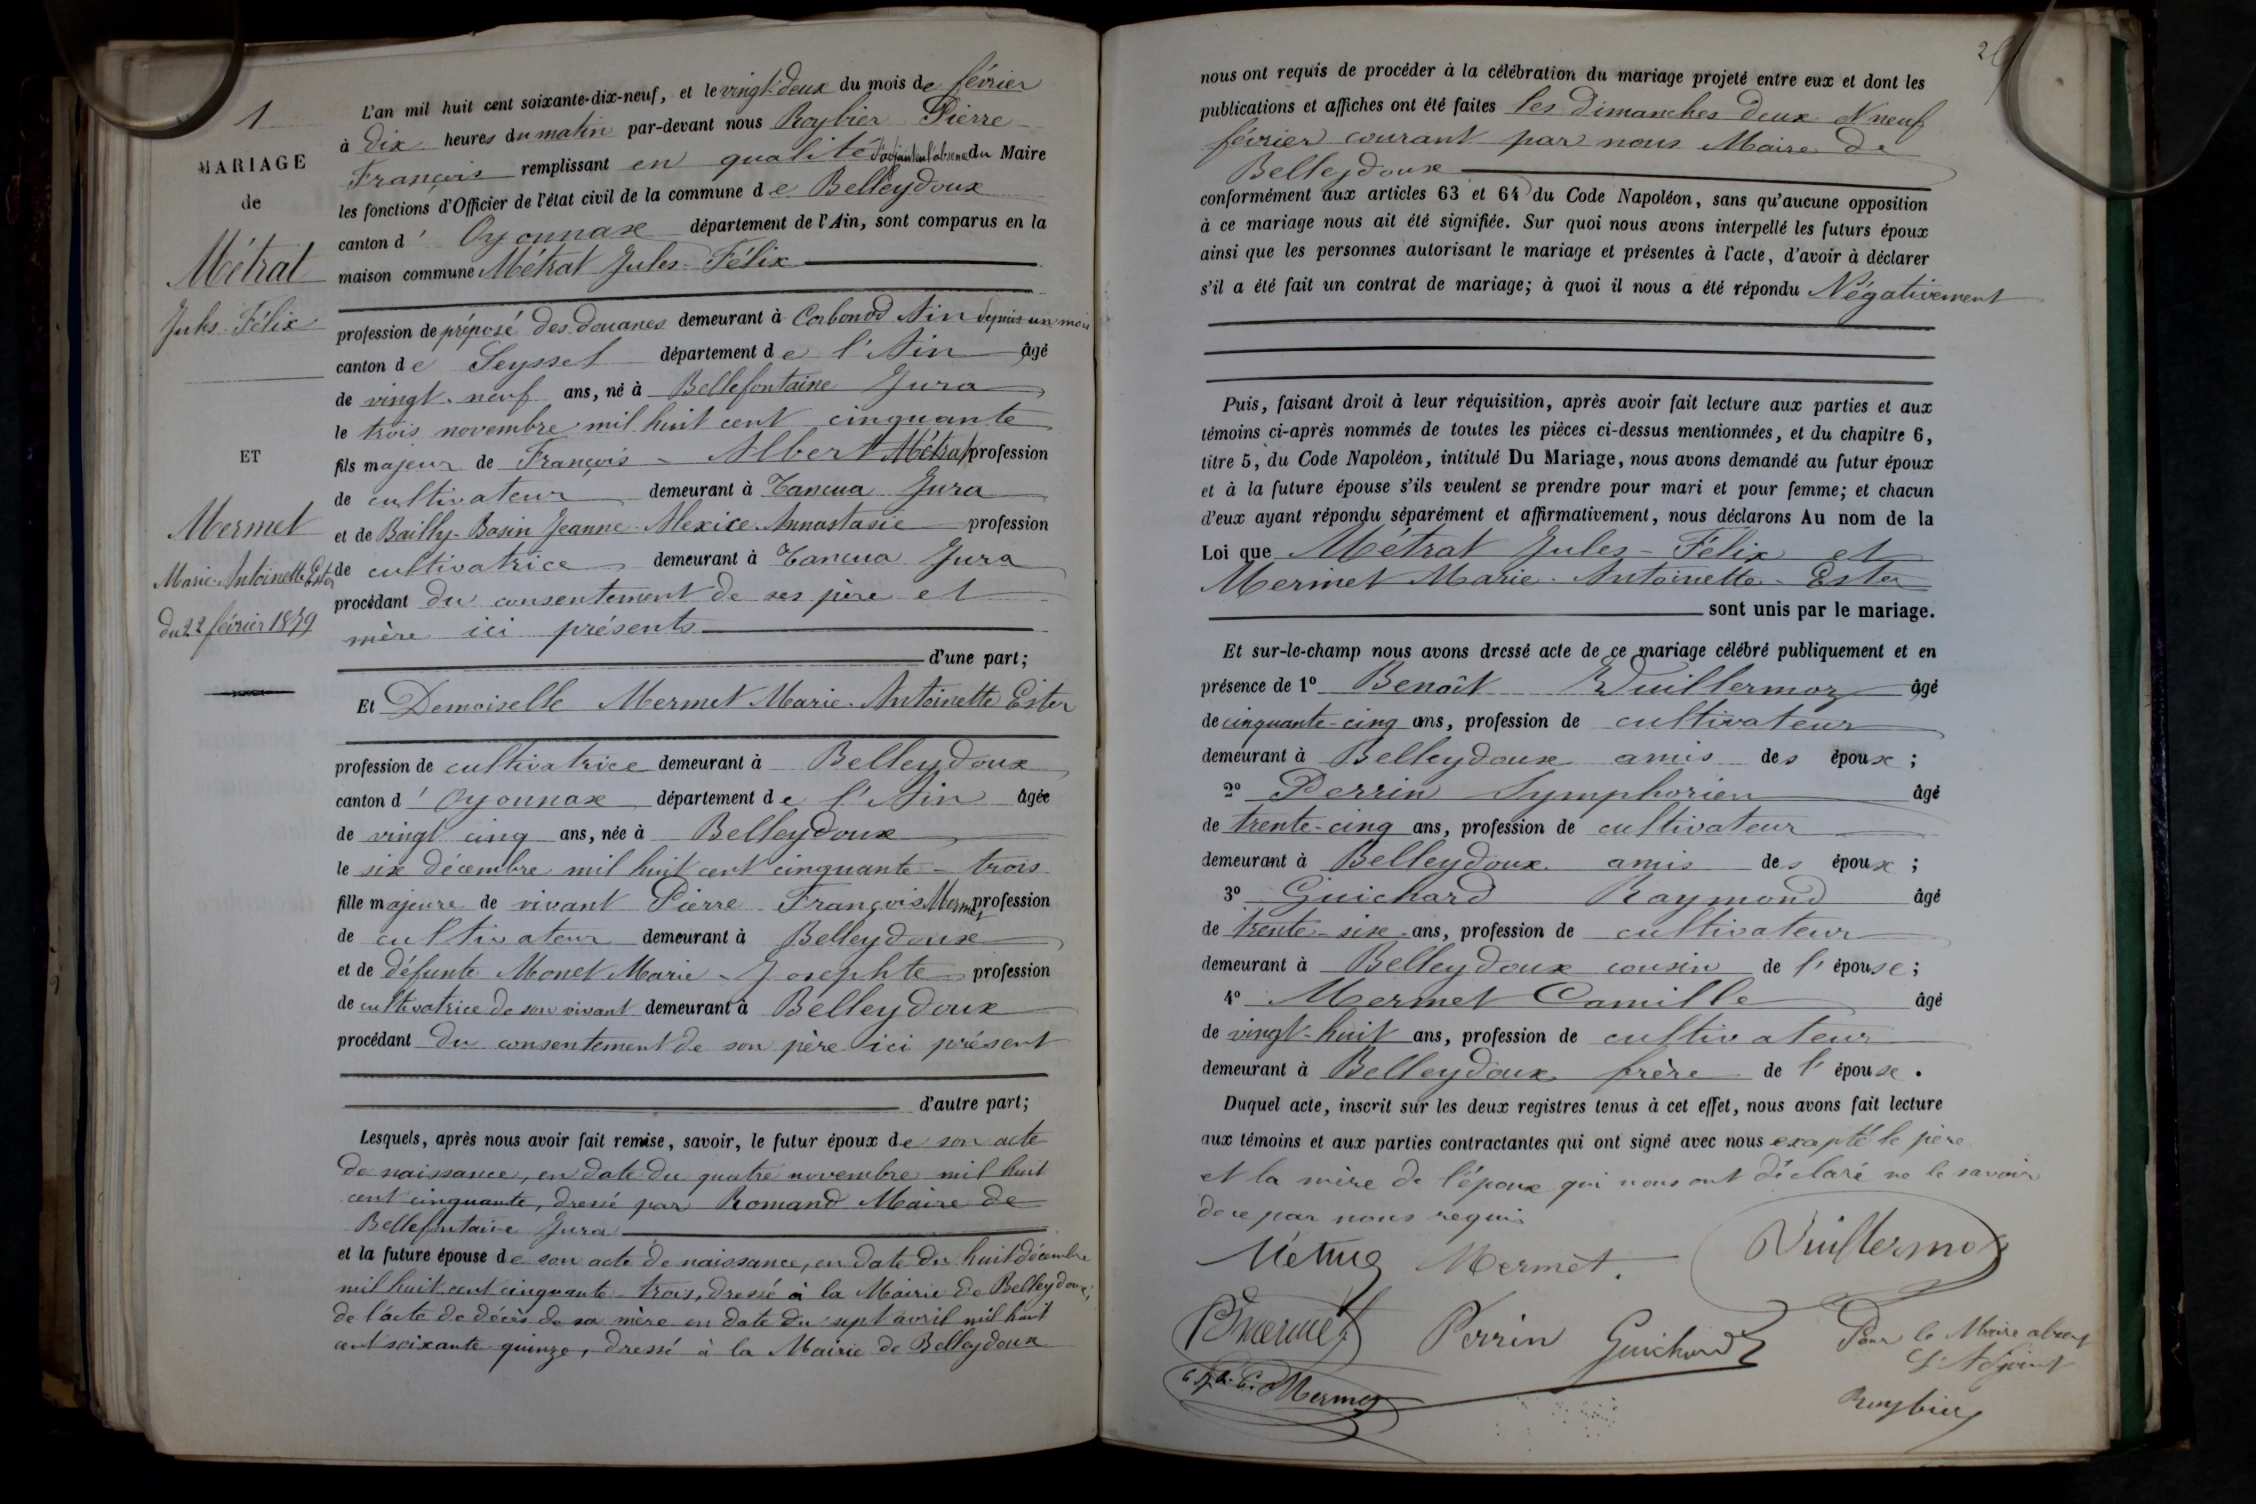 1
MARIAGE
de
Métrat
Jules-Félix
ET
Mermet
Marie-Antoinette Ester
du 22 février 1879
L'an mil huit cent soixante-dix-neuf, et le vingt-deux du mois de février
à dix heures du matin par-devant nous Roybier Pierre
François remplissant en qualité d'adjoint en l'absence du Maire
les fonctions d'Officier de l'état civil de la commune de Belleydoux
canton d' Oyonnax département de l'Ain, sont comparus en la
maison commune Métrat Jules-Félix
profession de préposé des douanes demeurant à Corbonod Ain depuis un mois
canton de Seyssel département de l'Ain âgé
de vingt-neuf ans, né à Bellefontaine Jura
le trois novembre mil huit cent cinquante
fils majeur de François-Albert Métrat profession
de cultivateur demeurant à Tancua Jura
et de Bailly-Basin Jeanne-Alexice-Annastasie profession
de cultivatrice demeurant à Tancua Jura
procédant du consentement de ses père et
mère ici présents
d'une part;
Et Demoiselle Mermet Marie-Antoinette Ester
profession de cultivatrice demeurant à Belleydoux
canton d' Oyonnax département de l'Ain âgée
de vingt cinq ans, née à Belleydoux
le six décembre mil huit cent cinquante-trois
fille majeure de vivant Pierre-François Mermet profession
de cultivateur demeurant à Belleydoux
et de défunte Monet Marie-Josephte profession
de cultivatrice de son vivant demeurant à Belleydoux
procédant du consentement de son père ici présent
d'autre part;
Lesquels, après nous avoir fait remise, savoir, le futur époux de son acte
de naissance, en date du quatre novembre mil huit
cent cinquante, dressé par Romand Maire de
Bellefontaine Jura
et la future épouse de son acte de naissance, en date du huit décembre
mil huit cent cinquante-trois, dressé à la Mairie de Belleydoux,
de l'acte de décès de sa mère en date du sept avril mil huit
cent soixante quinze, dressé à la Mairie de Belleydoux
nous ont requis de procéder à la célébration du mariage projeté entre eux et dont les
publications et affiches ont été faites les dimanches deux & neuf
février courant par nous Maire de
Belleydoux
conformément aux articles 63 et 64 du Code Napoléon, sans qu'aucune opposition
à ce mariage nous ait été signifiée. Sur quoi nous avons interpellé les futurs époux
ainsi que les personnes autorisant le mariage et présentes à l'acte, d'avoir à déclarer
s'il a été fait un contrat de mariage; à quoi il nous a été répondu Négativement
Puis, faisant droit à leur réquisition, après avoir fait lecture aux parties et aux
témoins ci-après nommés de toutes les pièces ci-dessus mentionnées, et du chapitre 6,
titre 5, du Code Napoléon, intitulé Du Mariage, nous avons demandé au futur époux
et à la future épouse s'ils veulent se prendre pour mari et pour femme; et chacun
d'eux ayant répondu séparément et affirmativement, nous déclarons Au nom de la
Loi que Métrat Jules-Félix et
Mermet Marie-Antoinette-Ester
sont unis par le mariage.
Et sur-le-champ nous avons dressé acte de ce mariage célébré publiquement et en
présence de 1° Benoît Vuillermoz âgé
de cinquante-cinq ans, profession de cultivateur
demeurant à Belleydoux amis des époux;
2° Perrin Symphorien âgé
de trente-cinq ans, profession de cultivateur
demeurant à Belleydoux amis des époux;
3° Guichard Raymond âgé
de trente-six ans, profession de cultivateur
demeurant à Belleydoux cousin de l'épouse;
4° Mermet Camille âgé
de vingt-huit ans, profession de cultivateur
demeurant à Belleydoux frère de l'épouse.
Duquel acte, inscrit sur les deux registres tenus à cet effet, nous avons fait lecture
aux témoins et aux parties contractantes qui ont signé avec nous exapté le père
et la mère de l'époux qui nous ont déclaré ne le savoir
de ce par nous requis
Métraz Mermet. Vuillermoz
Mermet Perrin Guichard Pour le Maire absent
L'Adjoint
Mermet Roybier